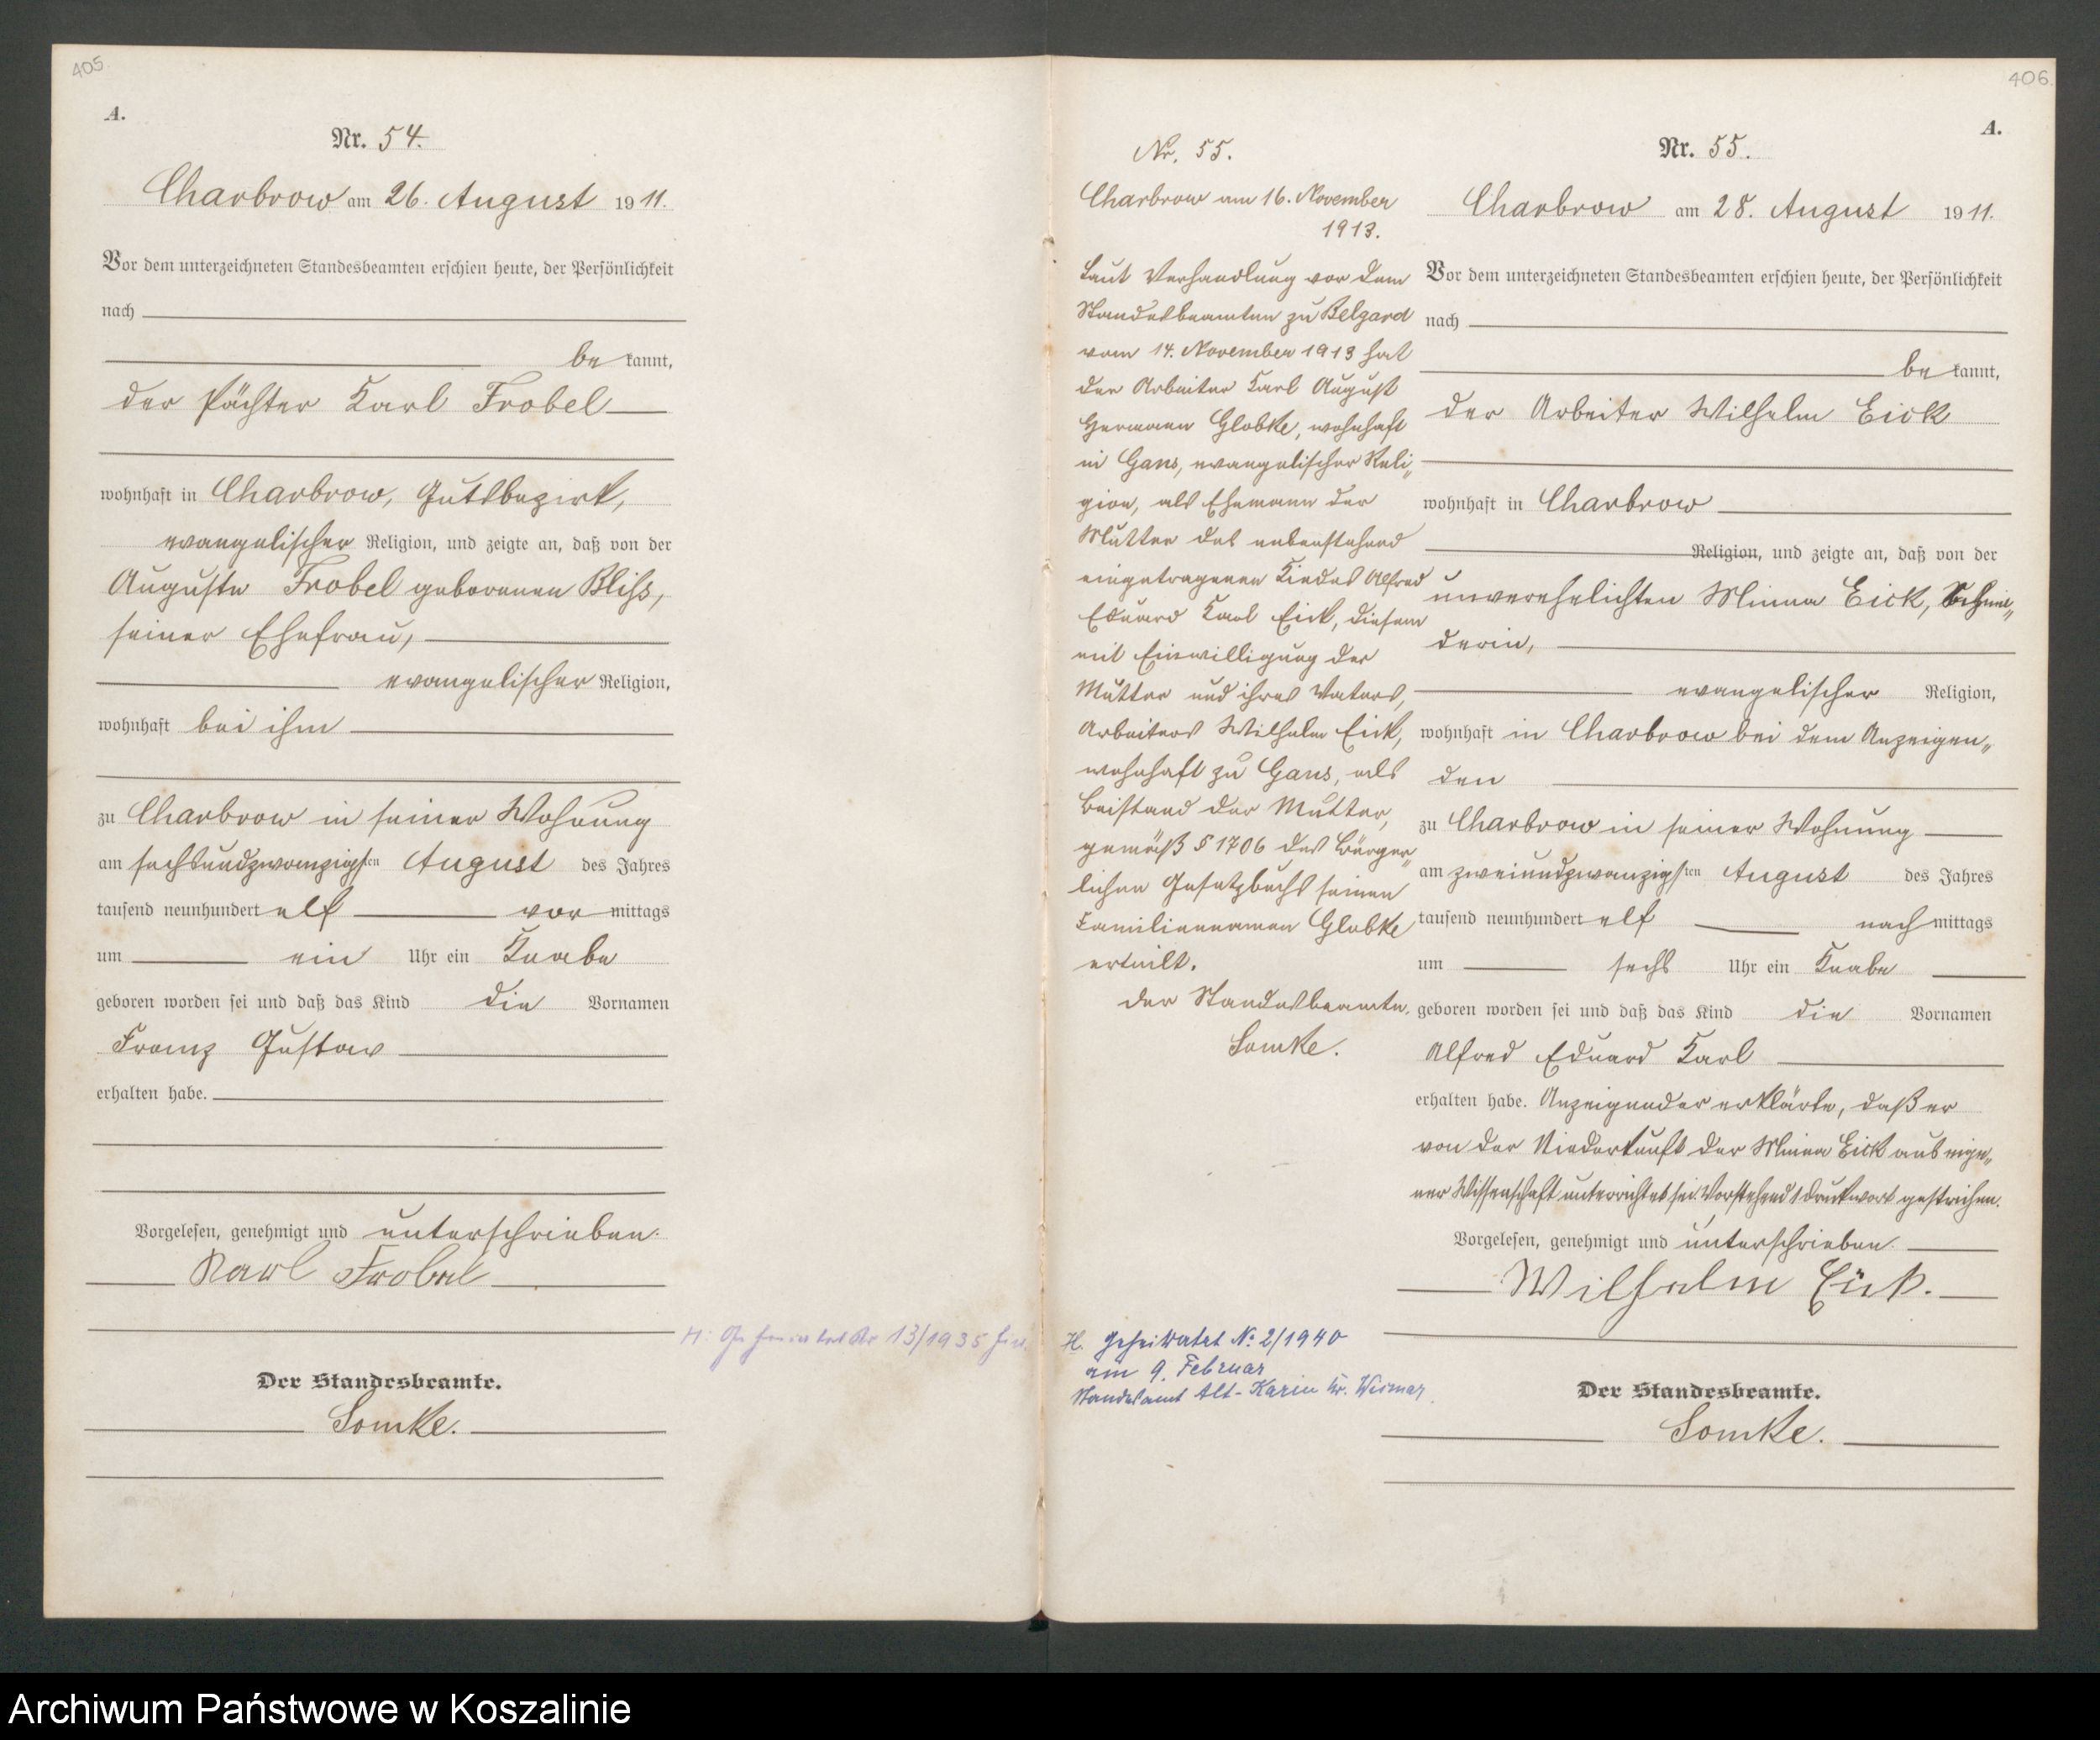 405.
A.
Nr. 54.
Charbrow am 26. August 1911.
Vor dem unterzeichneten Standesbeamten erschien heute, der Persönlichkeit
nach
be kannt,
der Pächter Karl Frobel
wohnhaft in Charbrow, Gutsbezirk,
evangelischer Religion, und zeigte an, daß von der
Auguste Frobel geborenen Bliss,
seiner Ehefrau,
evangelischer Religion,
wohnhaft bei ihm
zu Charbrow in seiner Wohnung
am sechsundzwanzigsten August des Jahres
tausend neunhundert elf vor mittags
um ein Uhr ein Knabe
geboren worden sei und daß das Kind die Vornamen
Franz Gustav
erhalten habe.
Vorgelesen, genehmigt und unterschrieben.
Karl Frobel
H: Geheiratet Nr 13/1935 hier.
Der Standesbeamte.
Somke.
406.
Nr. 55.
Charbrow am 16. November
1913.
Laut Verhandlung vor dem
Standesbeamten zu Belgard
vom 14. November 1913 hat
der Arbeiter Karl August
Hermann Globke, wohnhaft
in Gans, evangelischer Reli„
gion, als Ehemann der
Mutter des nebenstehend
eingetragenen Kindes Alfred
Eduard Karl Eick, diesem
mit Einwilligung der
Mutter und ihres Vaters,
Arbeiters Wilhelm Eick,
wohnhaft zu Gans, als
Beistand der Mutter,
gemäß § 1706 des Bürger„
lichen Gesetzbuchs seinen
Familiennamen Globke
erteilt.
Der Standesbeamte.
Somke.
H. geheiratet No 2/1940
am 9. Februar
Standesamt Alt-Karin Kr. Wismar.
A.
Nr. 55.
Charbrow am 28. August 1911.
Vor dem unterzeichneten Standesbeamten erschien heute, der Persönlichkeit
nach
be kannt,
der Arbeiter Wilhelm Eick
wohnhaft in Charbrow
Religion, und zeigte an, daß von der
unverehelichten Minna Eick, Schnei„
derin,
evangelischer Religion,
wohnhaft in Charbrow bei dem Anzeigen„
den
zu Charbrow in seiner Wohnung
am zweiundzwanzigsten August des Jahres
tausend neunhundert elf nach mittags
um sechs Uhr ein Knabe
geboren worden sei und daß das Kind die Vornamen
Alfred Eduard Karl
erhalten habe. Anzeigender erklärte, daß er
von der Niederkunft der Minna Eick aus eige„
ner Wissenschaft unterrichtet sei. Vorstehend 1 Druckwort gestrichen.
Vorgelesen, genehmigt und unterschrieben.
Wilhelm Eick.
Der Standesbeamte.
Somke.
Archiwum Państwowe w Koszalinie